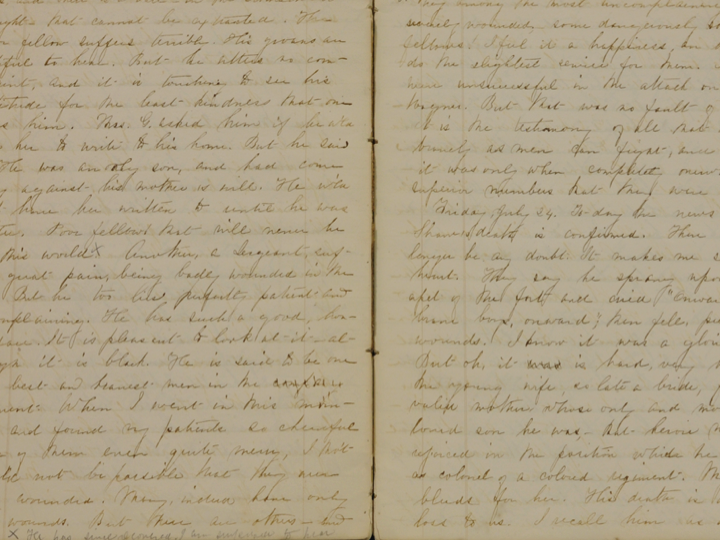 ght that cannot be exhausted. The
fellow suffers terribly. His groans are
ful to hear. But he utters no com-
int, and it is touching to see his
titude for the least kindness that one
s him. Mrs. G. asked him if he w'd
her to write to his home. But he said
He was an only son, and had come
against his mother's will. He w'd n
have her written to until he was
ter. Poor fellow! that will never be
this world.X Another, a Sergeant, suf-
great pain, being badly wounded in the
But he too lies perfectly patient and
mplaining. He has such a good, hon-
face. It is pleasant to look at it - al-
gh it is black. He is said to be one
best and bravest men in the
ment. When I went in this morn-
and found my patients so cheerful
of them even quite merry, I tho't
not be possible that they were
wounded. Many, indeed, have only
wounds. But there are others - and
X He has since recovered. I am surprised to hear
They among the most uncomplaining
wounded, some dangerously, s
fellows! I feel it a happiness, an
do the slightest service for them.
were unsuccessful in the attack on
Wagner. But that was no fault of
it is the testimony of all that
bravely as men can fight, and
it was only when completely over
superior numbers that they were
Friday, July 24. To-day the news
Shaw's death is confirmed. There
longer be any doubt. It makes me s
heart. They say he sprang upo
apet of the fort and cried "Onwar
brave boys, onward"; then fell, pie
wounds. I know it was a glorio
But oh, it is hard, very h
the young wife, so late a bride, f
valid mother whose only and mo
loved son he was, - that heroic m
rejoiced in the position which he
as colonel of a colored regiment. M
bleeds for her. His death is
loss to us. I recall him as